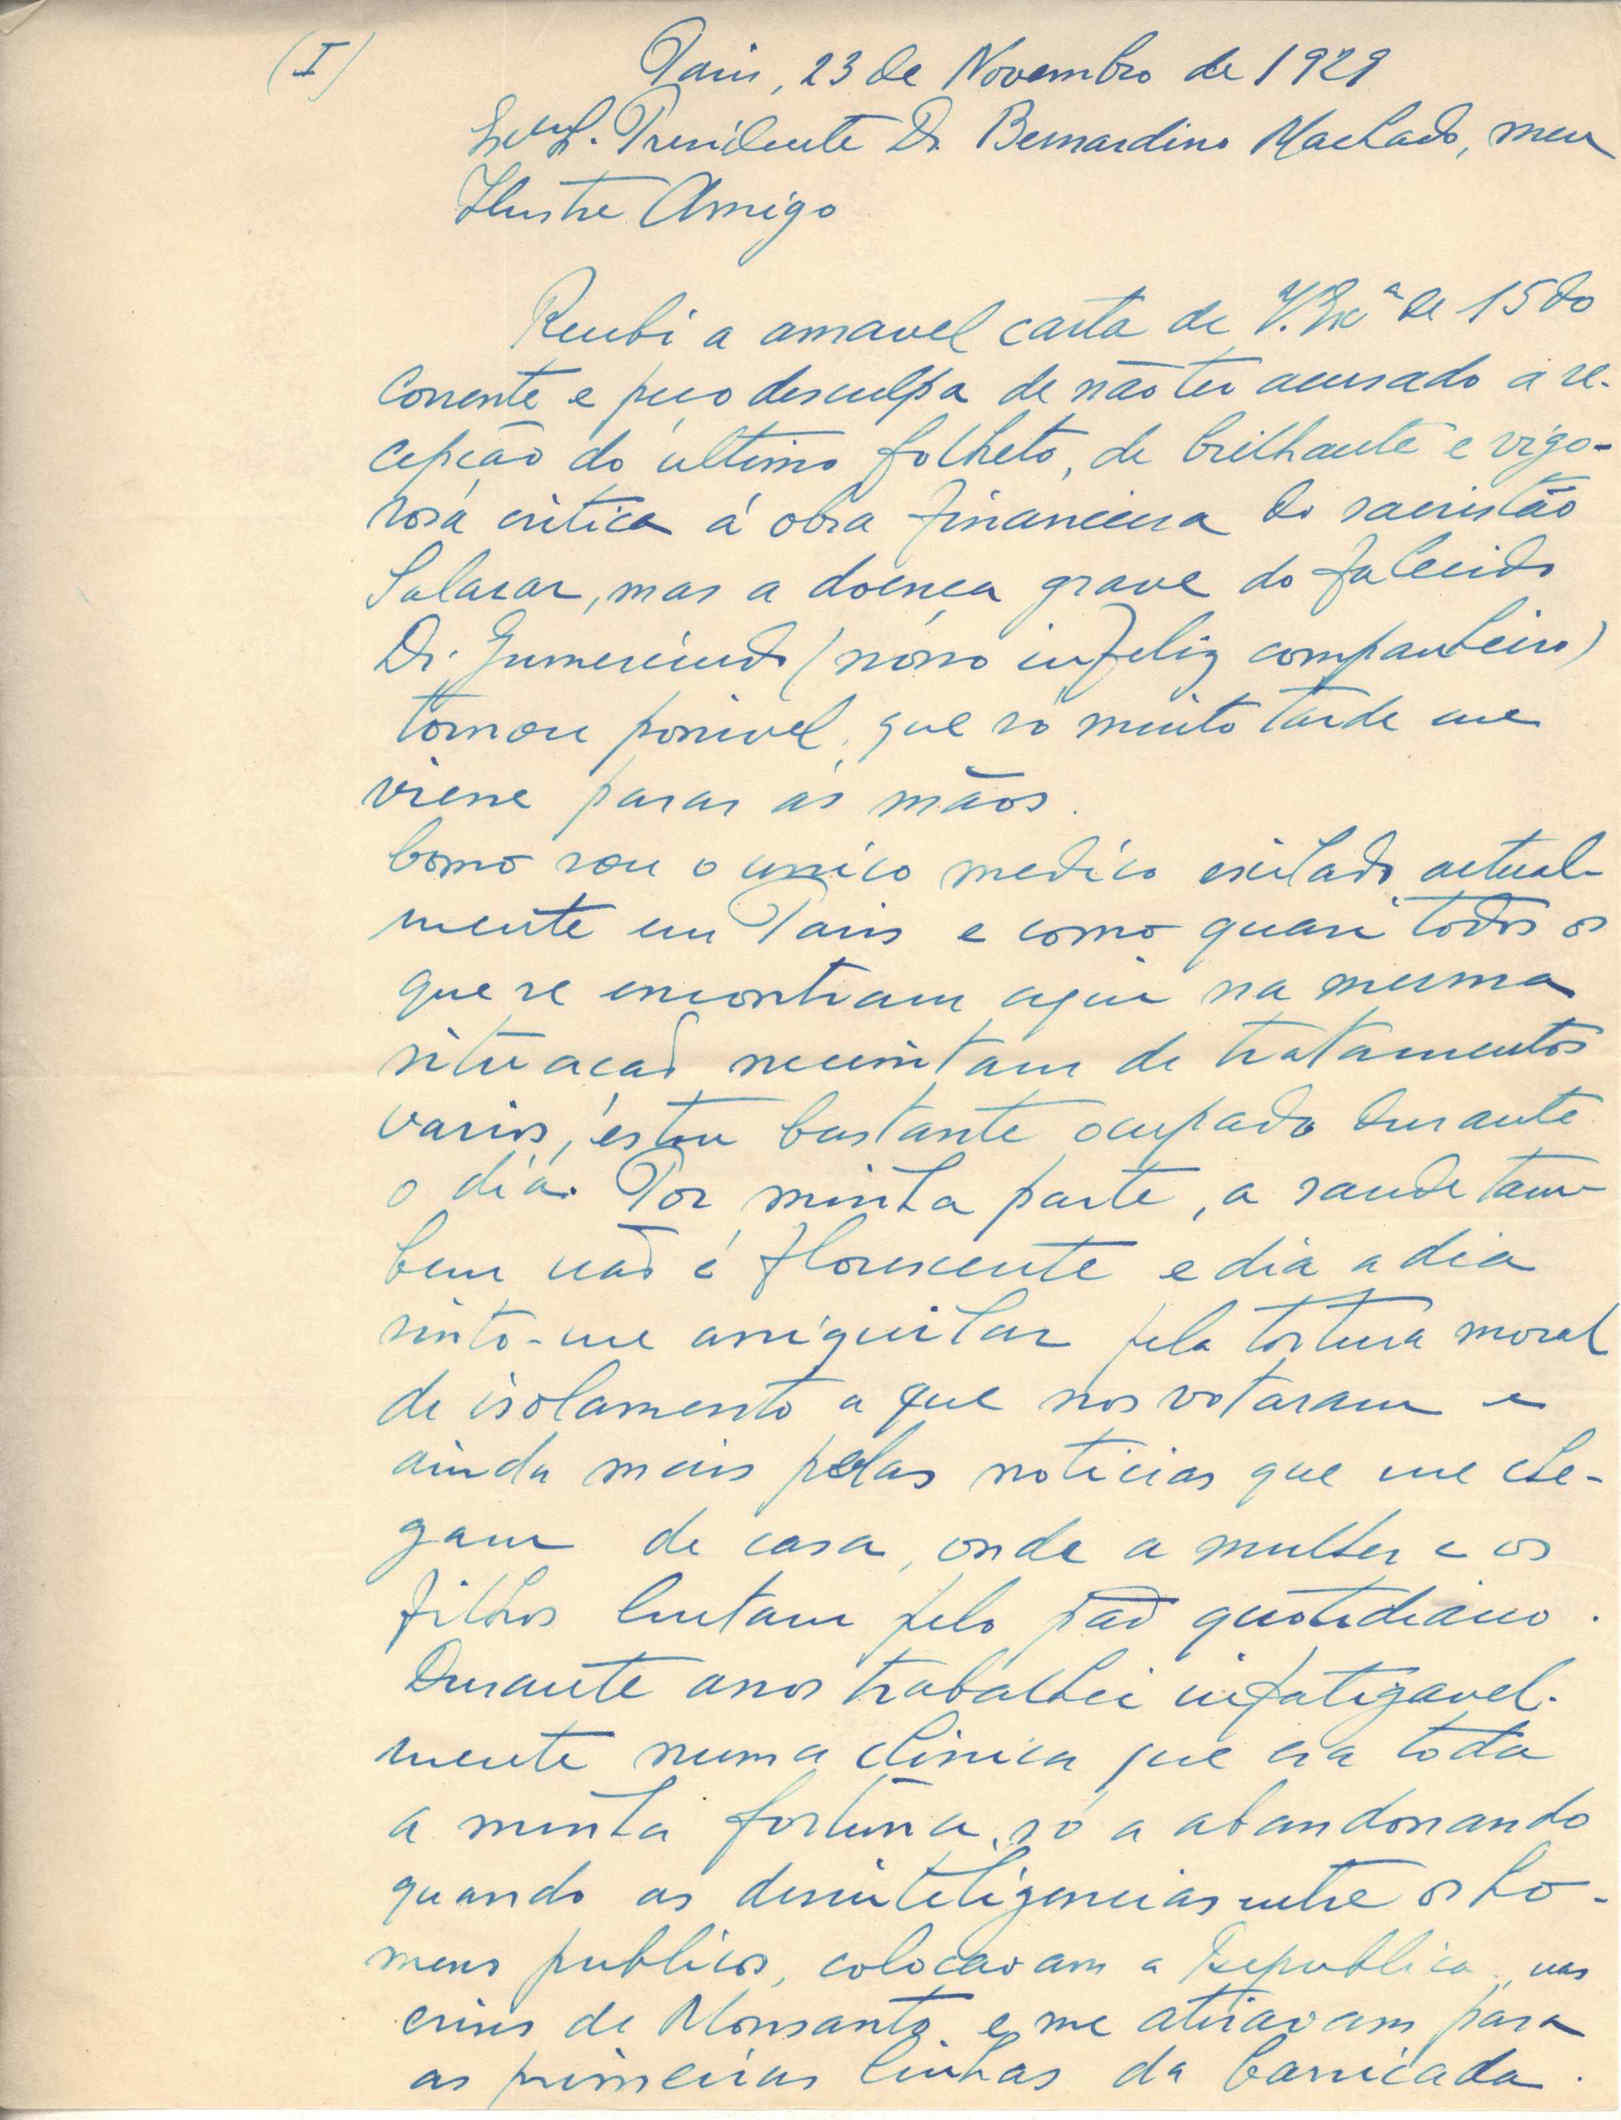 (I)
Paris, 23 de Novembro de 1929
Exmº. Presidente Dr. Bernardino Machado, meu
Ilustre Amigo
Recebi a amavel carta de V. Exª de 15 do
corrente e peço desculpa de não ter acusado a re-
cepção do ultimo folheto, de brilhante e vigo-
rosa critica á obra financeira do sacristão
Salazar, mas a doença grave do falecido
Dr. Gumerzindo (nosso infeliz companheiro)
tornou possivel, que só muito tarde me
viesse parar ás mãos.
Como sou o unico medico exilado actual-
mente em Paris e como quasi todos os
que se encontram aqui na mesma
situação necessitam de tratamentos
varios, estou bastante ocupado durante
o dia. Por minha parte, a saude tam-
bem não é florescente e dia a dia
sinto-me aniquilar pela tortura moral
de isolamento a que nos votaram e
ainda mais pelas noticias que me che-
gam de casa, onde a mulher e os
filhos lutam pelo pão quotidiano.
Durante anos trabalhei infatigavel-
mente numa clinica que era toda
a minha fortuna, só a abandonando
quando as desinteligencias entre os ho-
mens publicos, colocavam a Republica, nas
crises de Monsanto, e me atiravam para
as primeiras linhas da barricada.